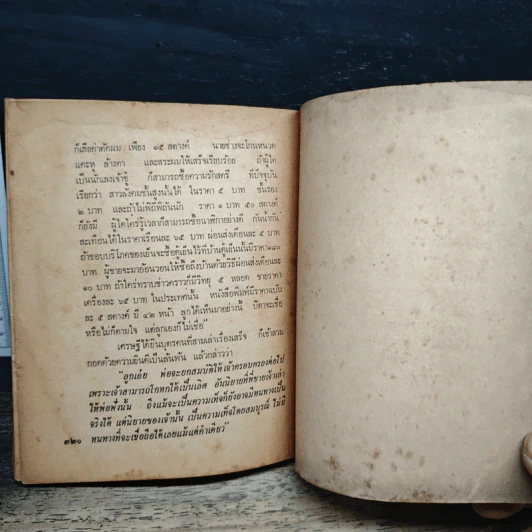 ก็เสียค่าตัดผม เพียง ๑๕ สตางค์ นายช่างจะโกนหนวด
แคะหู ล้างตา และสระผมให้เสร็จเรียบร้อย ถ้าผู้ใด
เป็นนักเลงเจ้าชู้ ก็สามารถซื้อความรักสตรี ที่ปัจจุบัน
เรียกว่า สาวสังคมชั้นสูงนั้นได้ ในราคา ๕ บาท ชั้นรอง
๒ บาท และถ้าไม่พิถีพิถันนัก ราคา ๑ บาท ๕๐ สตางค์
ก็ยังมี ผู้ใดใคร่รู้เวลาก็สามารถซื้อนาฬิกาอย่างดี กันน้ำกัน
สะเทือนได้ในราคาเรือนละ ๖๕ บาท ผ่อนส่งเดือนละ ๕ บาท
ถ้าชอบบริโภคของเย็นจะซื้อตู้เย็นไว้ที่บ้านตู้เย็นนั้นมีราคา
บาท ผู้ขายจะมาอ้อนวอนให้ซื้อถึงบ้านด้วยวิธีผ่อนส่งเดือนละ
๑๐ บาท ถ้าใคร่ทราบข่าวคราวก็มีวิทยุ ๕ หลอด ขายราคา
เครื่องละ ๖๕ บาท ในประเทศนั้น หนังสือพิมพ์มีราคาฉบับ
ละ ๕ สตางค์ มี ๔๒ หน้า ลูกได้เห็นมาอย่างนี้ บิดาจะเชื่อ
หรือไม่ก็ตามใจ แต่ลูกเองก็ไม่เชื่อ”
เศรษฐีได้ยินบุตรคนที่สามเล่าเรื่องเสร็จ ก็เข้าสวม
กอดด้วยความยินดีเป็นล้นพ้น แล้วกล่าวว่า
“ลูกเอ๋ย พ่อจะยกสมบัติให้เจ้าครอบครองต่อไป
เพราะเจ้าสามารถโกหกได้เป็นเลิศ อันนิยายที่พี่ชายเจ้าเล่า
ให้พ่อฟังนั้น ถึงแม้จะเป็นความเท็จก็ยังอาจมีหนทางเป็น
จริงได้ แต่นิยายของเจ้านั้น เป็นความเท็จโดยสมบูรณ์ ไม่มี
หนทางที่จะเชื่อถือได้เลยแม้แต่คำเดียว”
๓๒๐